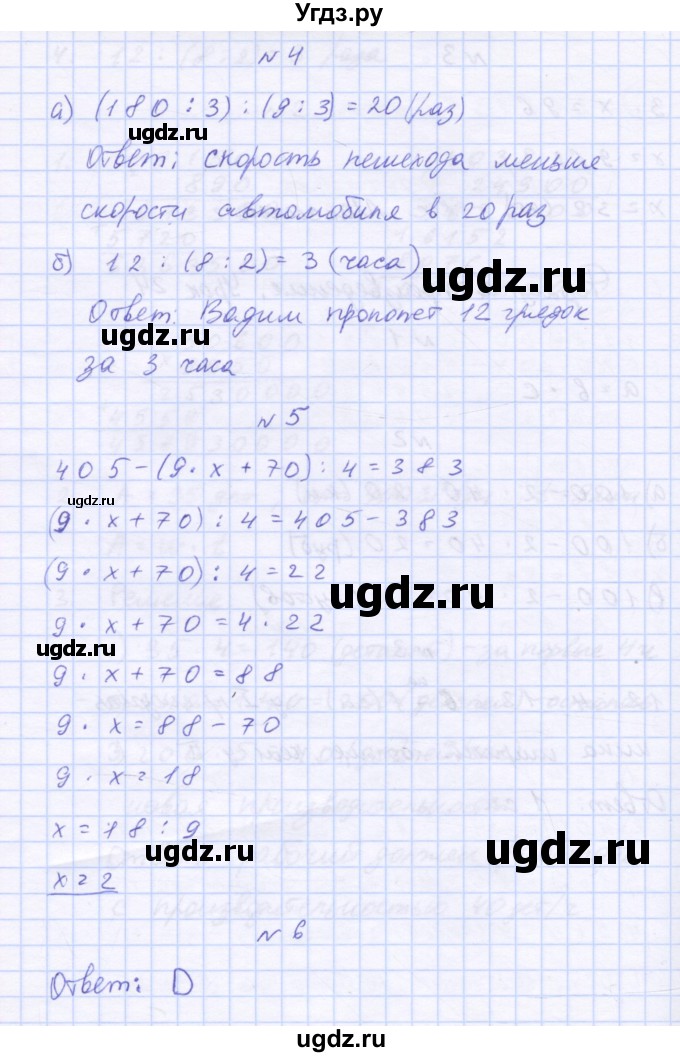 Угдз.ру
№4
а) (180 : 3) : (9 : 3) = 20 (раз)
ugdz.ru
Ответ: скорость пешехода меньше
скорости автомобиля в 20 раз
ugdz.ru
б) 12 : (8 : 2) = 3 (часа)
ugdz.ru
Ответ: Вадим прополет 12 грядок
ugdz.ru
за 3 часа
№5
405 - (9 · x + 70) : 4 = 383
ugdz.ru
(9 · x + 70) : 4 = 405 - 383
(9 · x + 70) : 4 = 22
ugdz.ru
9 · x + 70 = 4 · 22
ugdz.ru
9 · x + 70 = 88
9 · x = 88 - 70
9 · x = 18
x = 18 : 9
ugdz.ru
ugdz.ru
x = 2
№6
Ответ: D
ugdz.ru